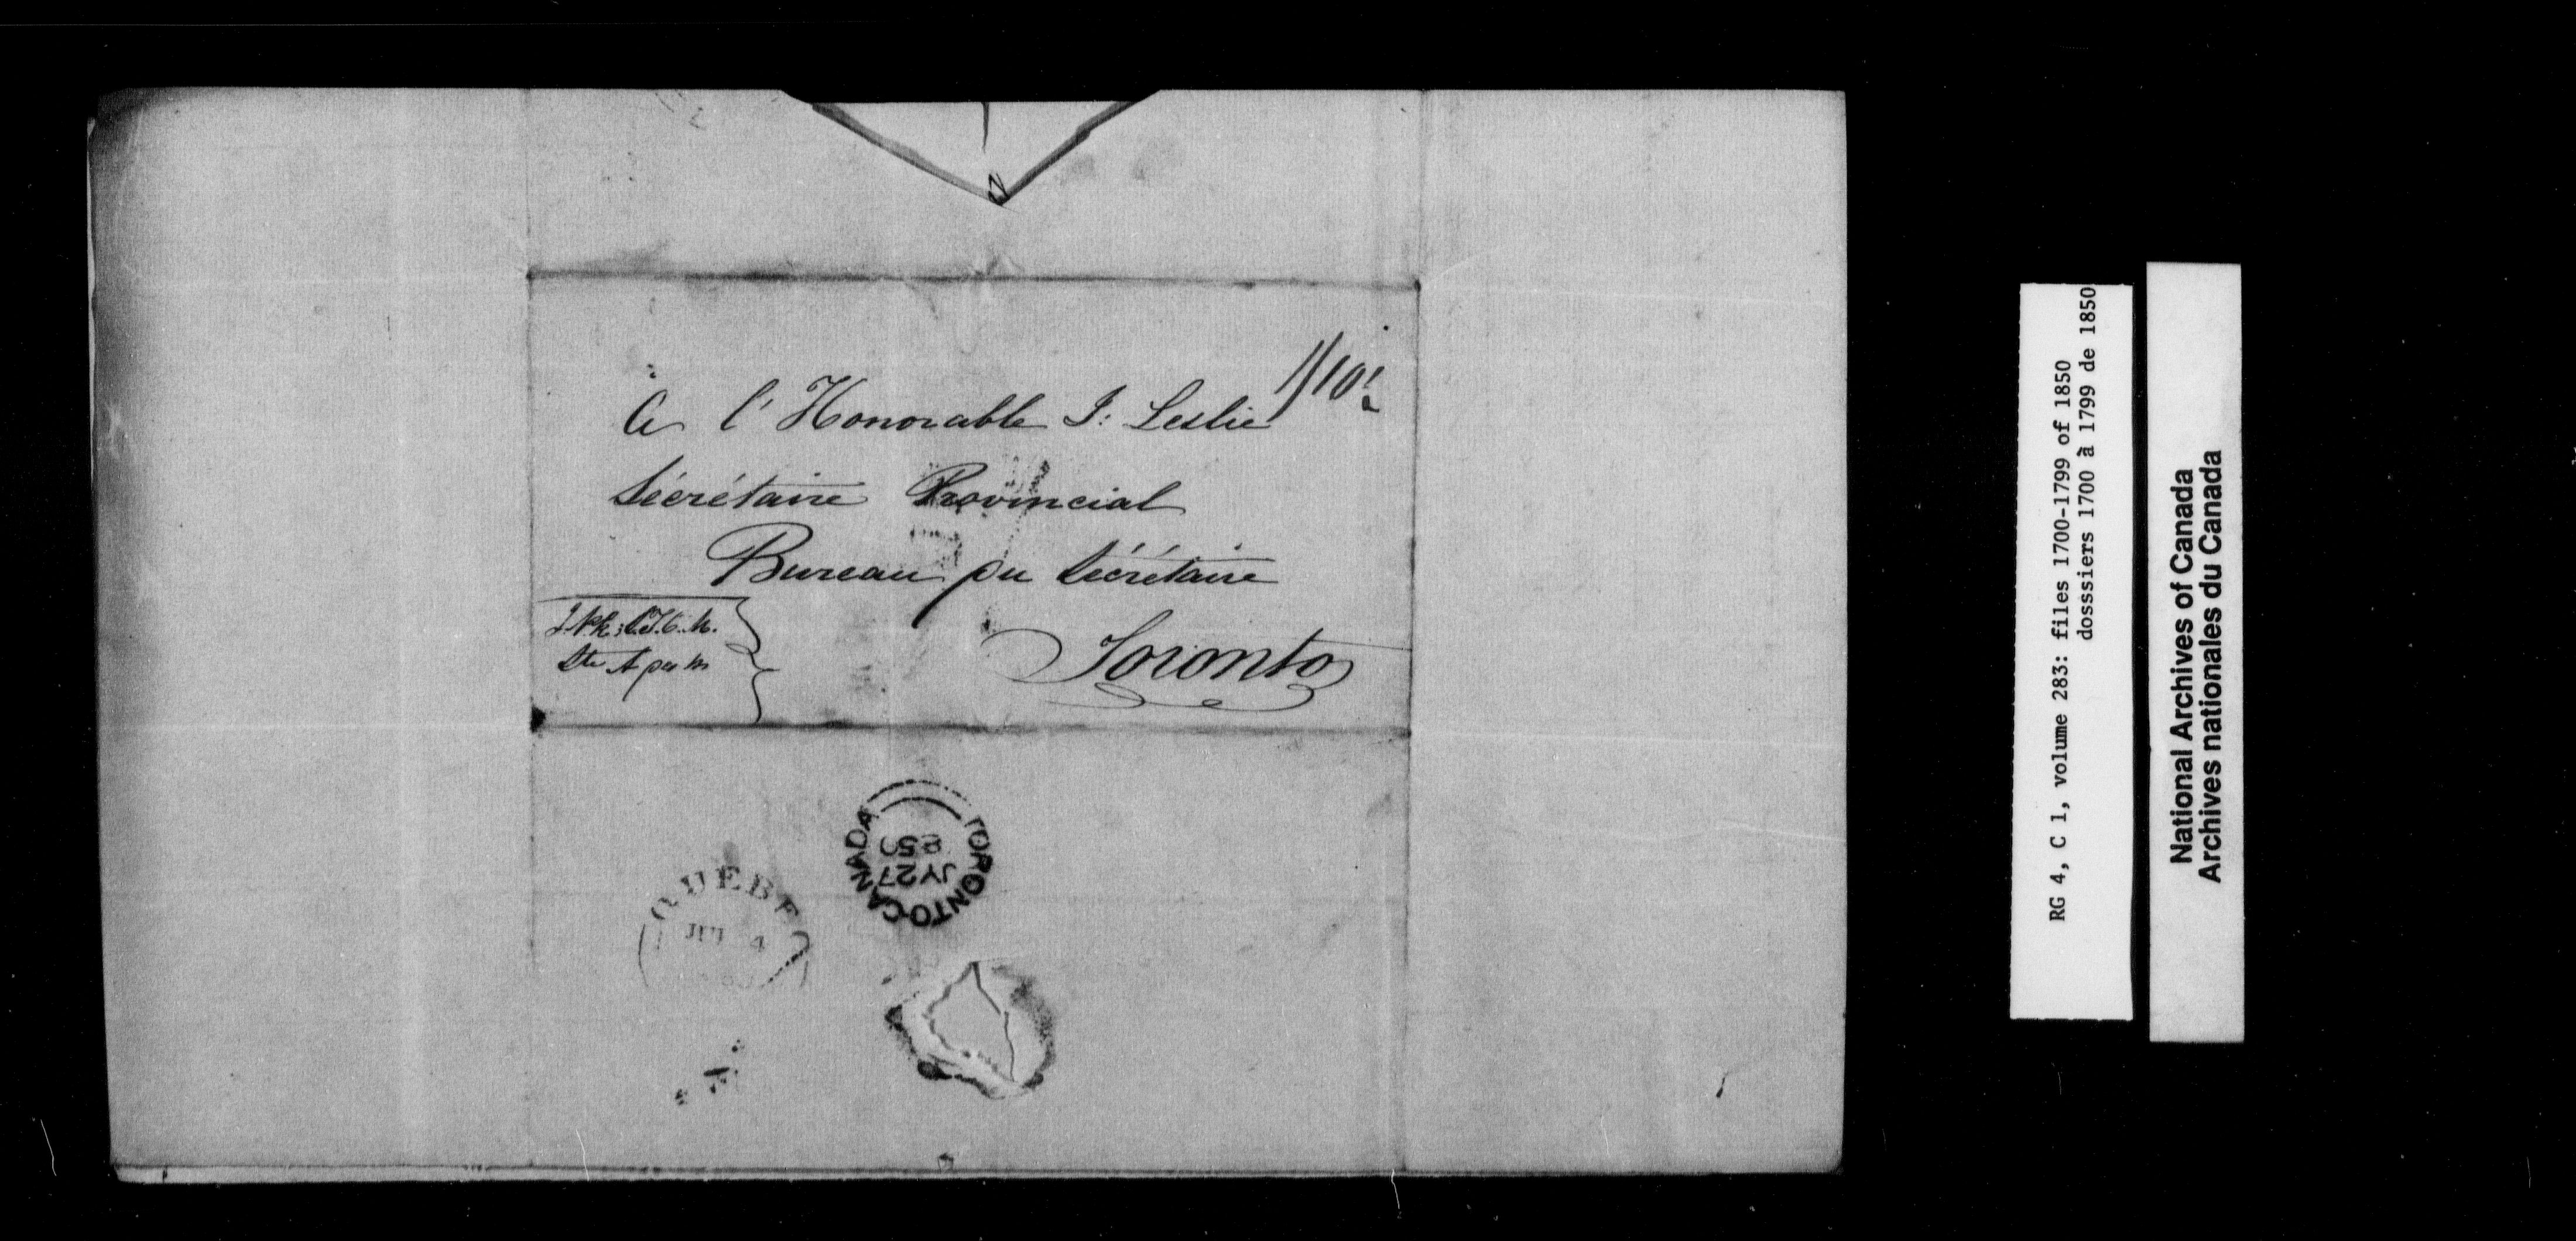 A l'Honorable J: Leslie
1/10
Sécrétaire Provincial
Bureau du Sécrétaire
Toronto
TORONTO CANADA
JY 27
850
QUEBEC
RG 4, C 1, volume 283: files 1700-1799 of 1850
dosssiers 1700 à 1799 de 1850
National Archives of Canada
Archives nationales du Canada